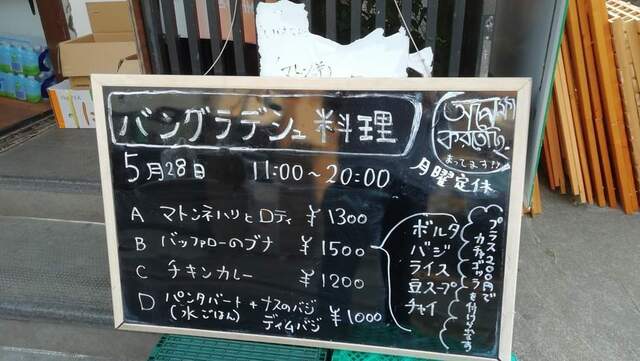 バングラデシュ料理
অপেক্ষা
করতেছি
まってます!?
5月28日 11:00～20:00
月曜定休
A マトンネハリとロティ ¥1300
B バッファローのブナ ¥1500
C チキンカレー ¥1200
D パンタバート + ナスのバジ
(水ごはん) ディムバジ ¥1000
ボルタ
バジ
ライス
豆スープ
チャイ
プラス200円で
カチャゴッラを付けられます